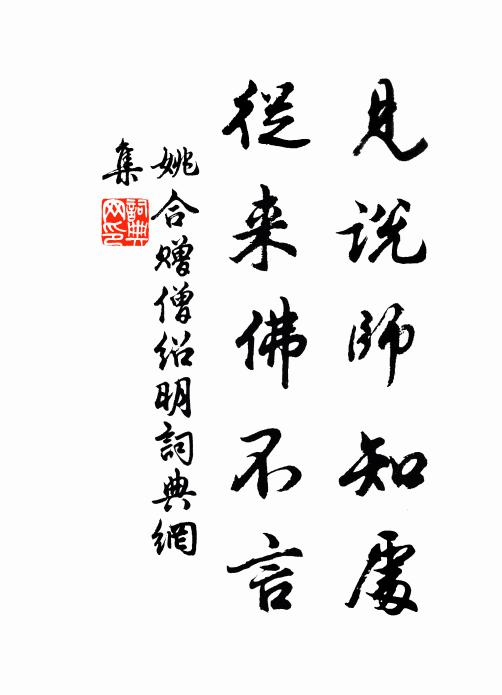 見説師知處
從来佛不言
姚合贈僧紹明詞典網
集
詞典
网印